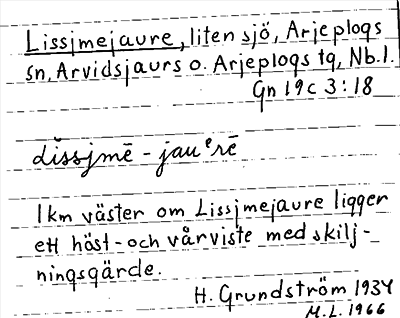 Lissjmejaure, liten sjö, Arjeplogs
sn, Arvidsjaurs o. Arjeplogs tg, Nb.l.
Gn 19c 3:18
lissjmē - jauᵉrē
1 km väster om Lissjmejaure ligger
ett höst- och vårviste med skilj-
ningsgärde.
H. Grundström 1934
M.L. 1966